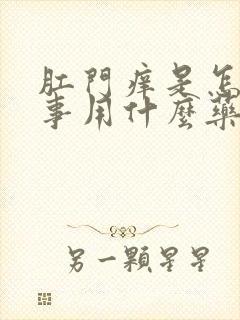 肛門痒是怎
事用什麼藥
另一顆星星